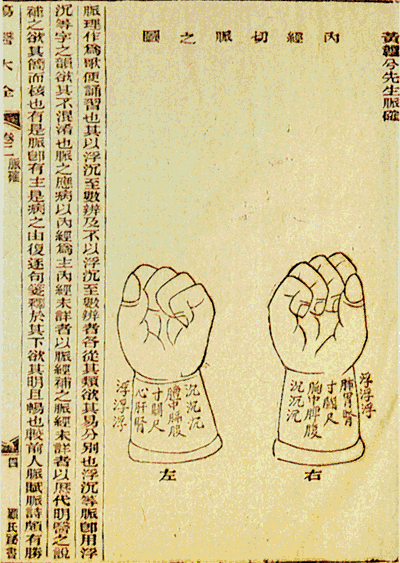 黃韞兮先生脈確
內經切脈之圖
浮浮浮
肺胃腎
寸關尺
胸中脾腹
沉沉沉
右
沉沉沉
膻中膈腹
寸關尺
心肝腎
浮浮浮
左
脈理作爲歌便誦習也其以浮沉至數辨及不以浮沉至數辨者各從其類欲其易分別也浮沉等脈卽用浮
沉等字之韻欲其不混淆也脈之應病以內經爲主內經未詳者以脈經補之脈經未詳者以歷代明醫之說
補之欲其簡而核也有是脈卽有主是病之由復逐句箋釋於其下欲其明且暢也較前人脈賦脈詩頗有勝
瘍醫大全 卷二 脈確 四 民秘書